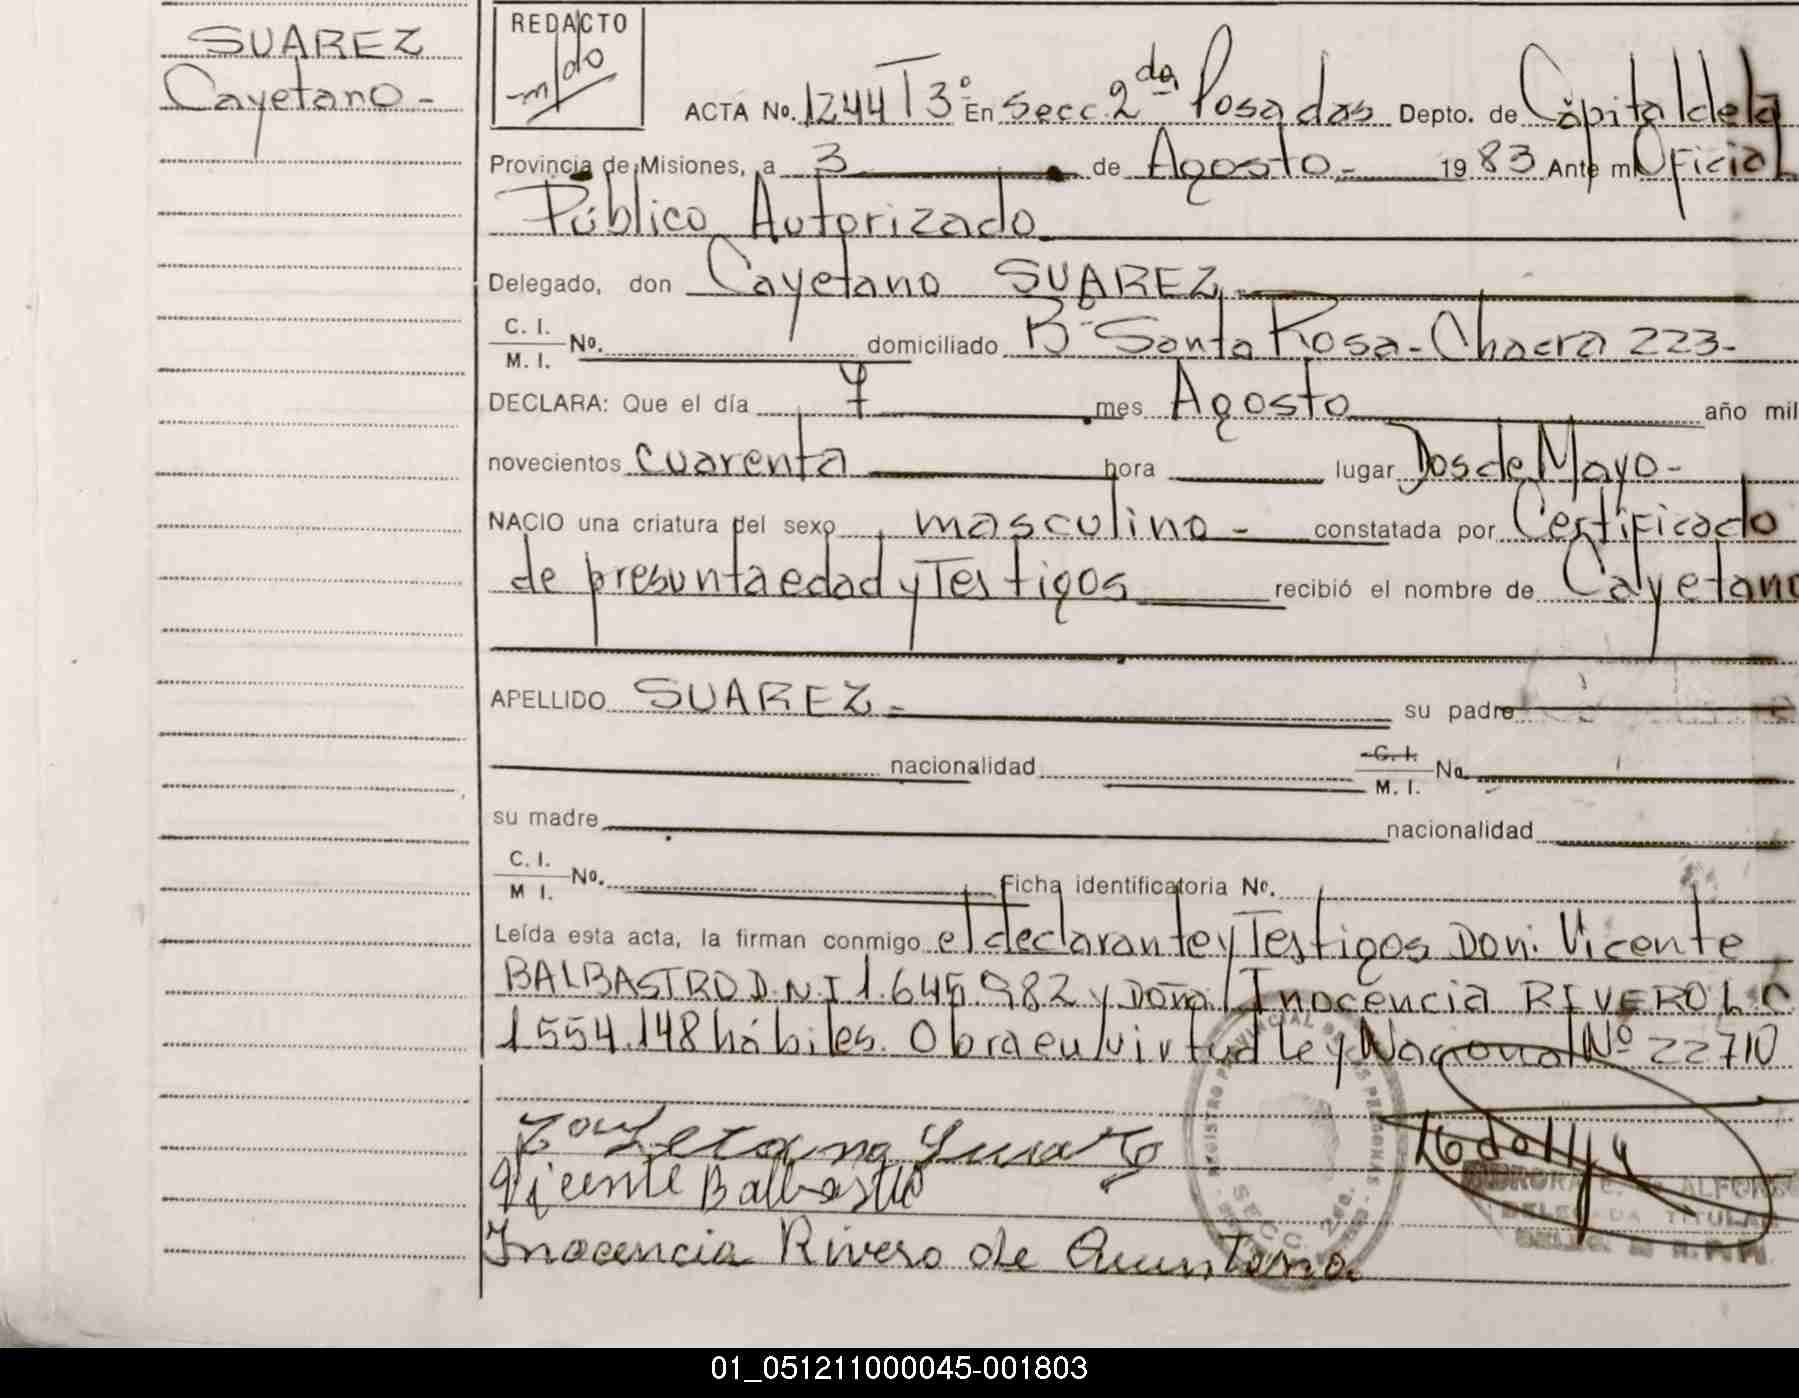 SUAREZ
Cayetano -
REDACTO
ACTA No. 1244 T 3° En Secc. 2da Posadas Depto. de Capital de la
Provincia de Misiones, a 3 de Agosto - 1983 Ante mi Oficial
Público Autorizado
Delegado, don Cayetano SUAREZ -
C. I.
M. I. No. domiciliado B° Santa Rosa - Chacra 223 -
DECLARA: Que el día 7 mes Agosto año mil
novecientos cuarenta hora lugar Dos de Mayo -
NACIO una criatura del sexo masculino - constatada por Certificado
de presunta edad y Testigos recibió el nombre de Cayetano
APELLIDO SUAREZ - su padre
nacionalidad C. I. M. I. No.
su madre nacionalidad
C. I.
M I. No. Ficha identificatoria No.
Leída esta acta, la firman conmigo el declarante y Testigos Don: Vicente
BALBASTRO D.N.I 1.645.982 y Doña Inocencia RIVERO L.C
1554.148 hábiles. Obra en virtud Ley Nacional Nº 22710
Vicente Balbastro
Inocencia Rivero de Quintana
REGISTRO PROVINCIAL DE LAS PERSONAS
SECC. 2da.
DELEGADA TITULAR
01_051211000045-001803